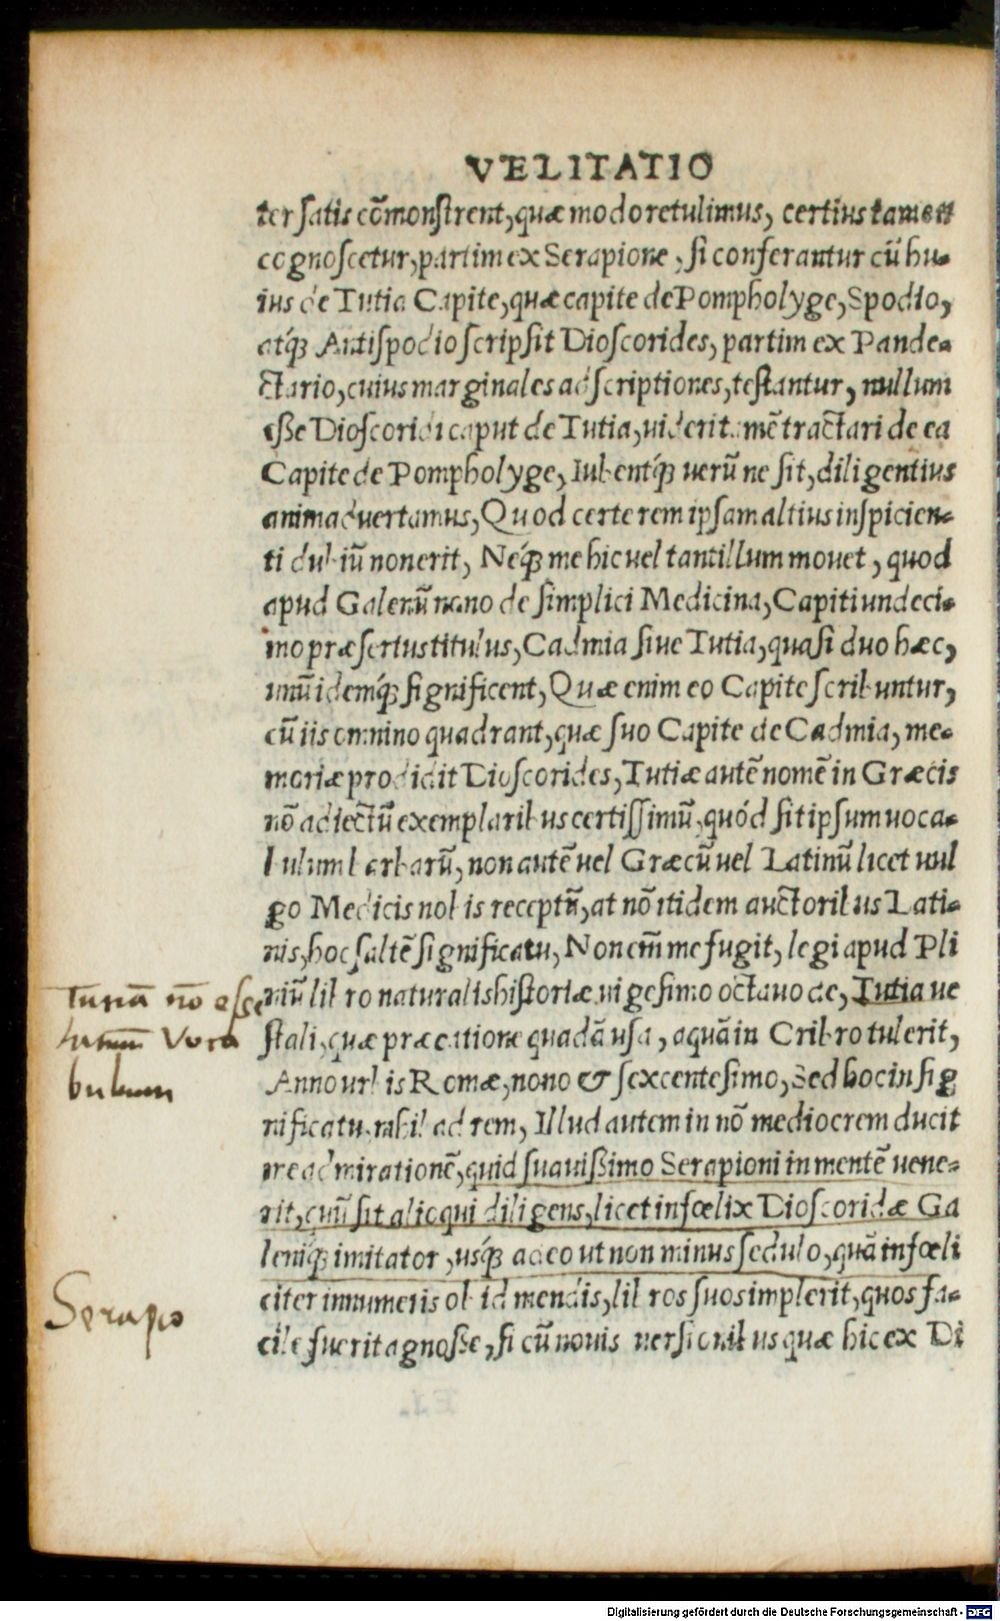 VELITATIO
ter satis cōmonstrent, quæ modo retulimus, certius tamen
cognoscetur, partim ex Serapione, si conferantur cū hu-
ius de Tutia Capite, quæ capite de Pompholyge, Spodio,
atq́; Antispodio scripsit Dioscorides, partim ex Pande-
ctario, cuius marginales adscriptiones, testantur, nullum
eße Dioscoridi caput de Tutia, uiderit amē tractari de ea
Capite de Pompholyge, Iubentq́; uerū ne sit, diligentius
animaduertamus, Quod certe rem ipsam altius inspicien-
ti dubiū non erit, Neq́; me hic uel tantillum mouet, quod
apud Galenū nono de simplici Medicina, Capiti undeci-
mo præfertus titulus, Cadmia siue Tutia, quasi duo hæc,
unū idemq́; significent, Quæ enim eo Capite scribuntur,
cū iis omnino quadrant, quæ suo Capite de Cadmia, me-
moriæ prodidit Dioscorides, Tutiæ autē nomē in Græcis
nō adiectū exemplaribus certissimū, quód sit ipsum uoca-
bulum barbarū, non autē uel Græcū uel Latinū licet uul
go Medicis nobis receptū, at nō itidem auctoribus Lati-
nis, hoc saltē significatu, Non em̄ me fugit, legi apud Pli
niū libro naturalis historiæ uigesimo octauo de, Tutia ue
stali, quæ precatione quadā usa, aquā in Cribro tulerit,
Anno urbis Romæ, nono & sexcentesimo, Sed hoc in sig
nificatu nihil ad rem, Illud autem in nō mediocrem ducit
me admirationē, quid suauißimo Serapioni in mentē uene-
rit, cuū sit alioqui diligens, licet infœlix Dioscoridæ Ga
leniq́; imitator, usq́; adeo ut non minus sedulo, quā infœli
citer innumeris ob id mendis, libros suos implerit, quos fa-
cile fuerit agnoße, si cū nouis uersionibus quæ hic ex Di
Tutiā nō esse
latinum Voca
bulum
Serapio
Digitalisierung gefördert durch die Deutsche Forschungsgemeinschaft - DFG